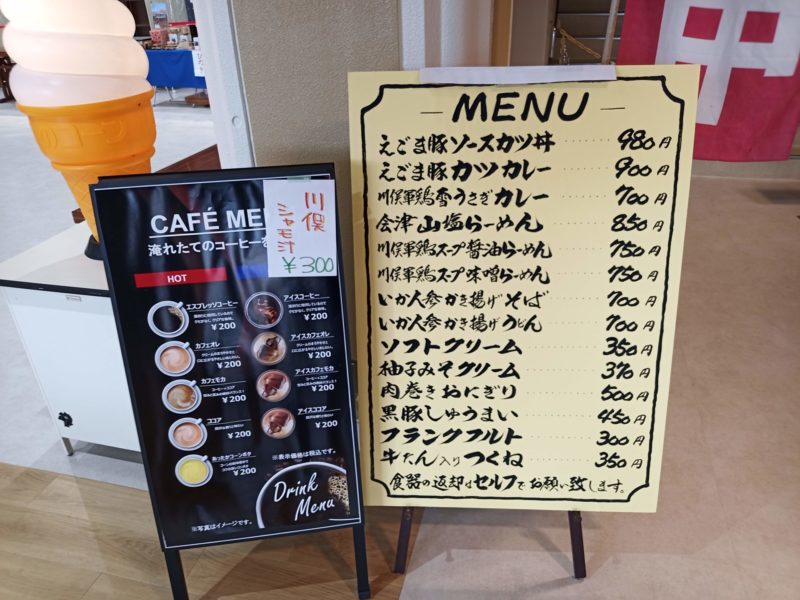 CAFÉ ME
淹れたてのコーヒーを
川俣
シャモ汁
¥300
HOT
エスプレッソコーヒー
¥200
アイスコーヒー
¥200
カフェオレ
¥200
アイスカフェオレ
¥200
カフェモカ
コーヒー+ココア
¥200
アイスカフェモカ
コーヒー+ココア
¥200
ココア
¥200
アイスココア
¥200
あったかコーンポタ
¥200
※表示価格は税込です。
Drink
Menu
※写真はイメージです。
MENU
えごま豚ソースカツ丼 980円
えごま豚カツカレー 900円
川俣軍鶏雪うさぎカレー 700円
会津山塩らーめん 850円
川俣軍鶏スープ醤油らーめん 750円
川俣軍鶏スープ味噌らーめん 750円
いか人参かき揚げそば 700円
いか人参かき揚げうどん 700円
ソフトクリーム 350円
柚子みそクリーム 370円
肉巻きおにぎり 500円
黒豚しゅうまい 450円
フランクフルト 300円
牛たん入りつくね 350円
食器の返却はセルフでお願い致します。